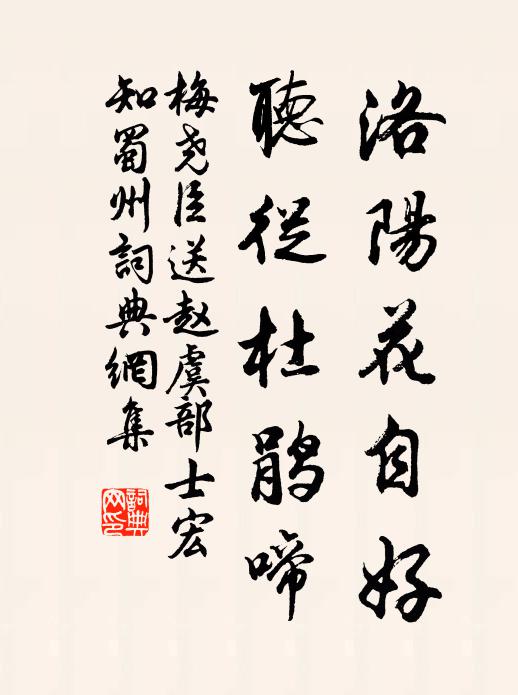 洛陽花自好
聽從杜鹃啼
梅尧臣送赵虞部士宏
知蜀州詞典網集
詞典
网印